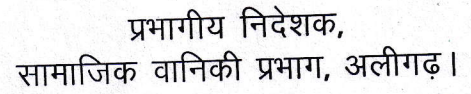 प्रभागीय निदेशक,
सामाजिक वानिकी प्रभाग, अलीगढ़।